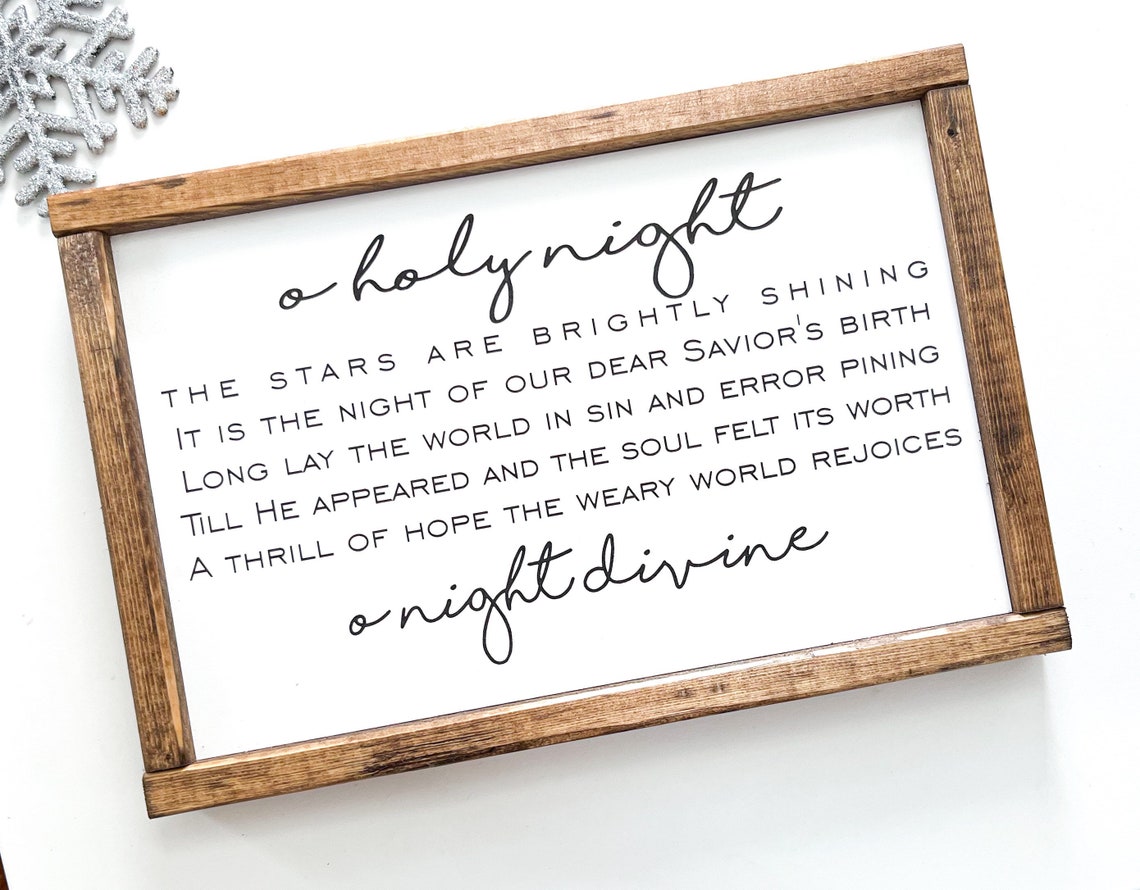 o holy night
THE STARS ARE BRIGHTLY SHINING
IT IS THE NIGHT OF OUR DEAR SAVIOR'S BIRTH
LONG LAY THE WORLD IN SIN AND ERROR PINING
TILL HE APPEARED AND THE SOUL FELT ITS WORTH
A THRILL OF HOPE THE WEARY WORLD REJOICES
o night divine